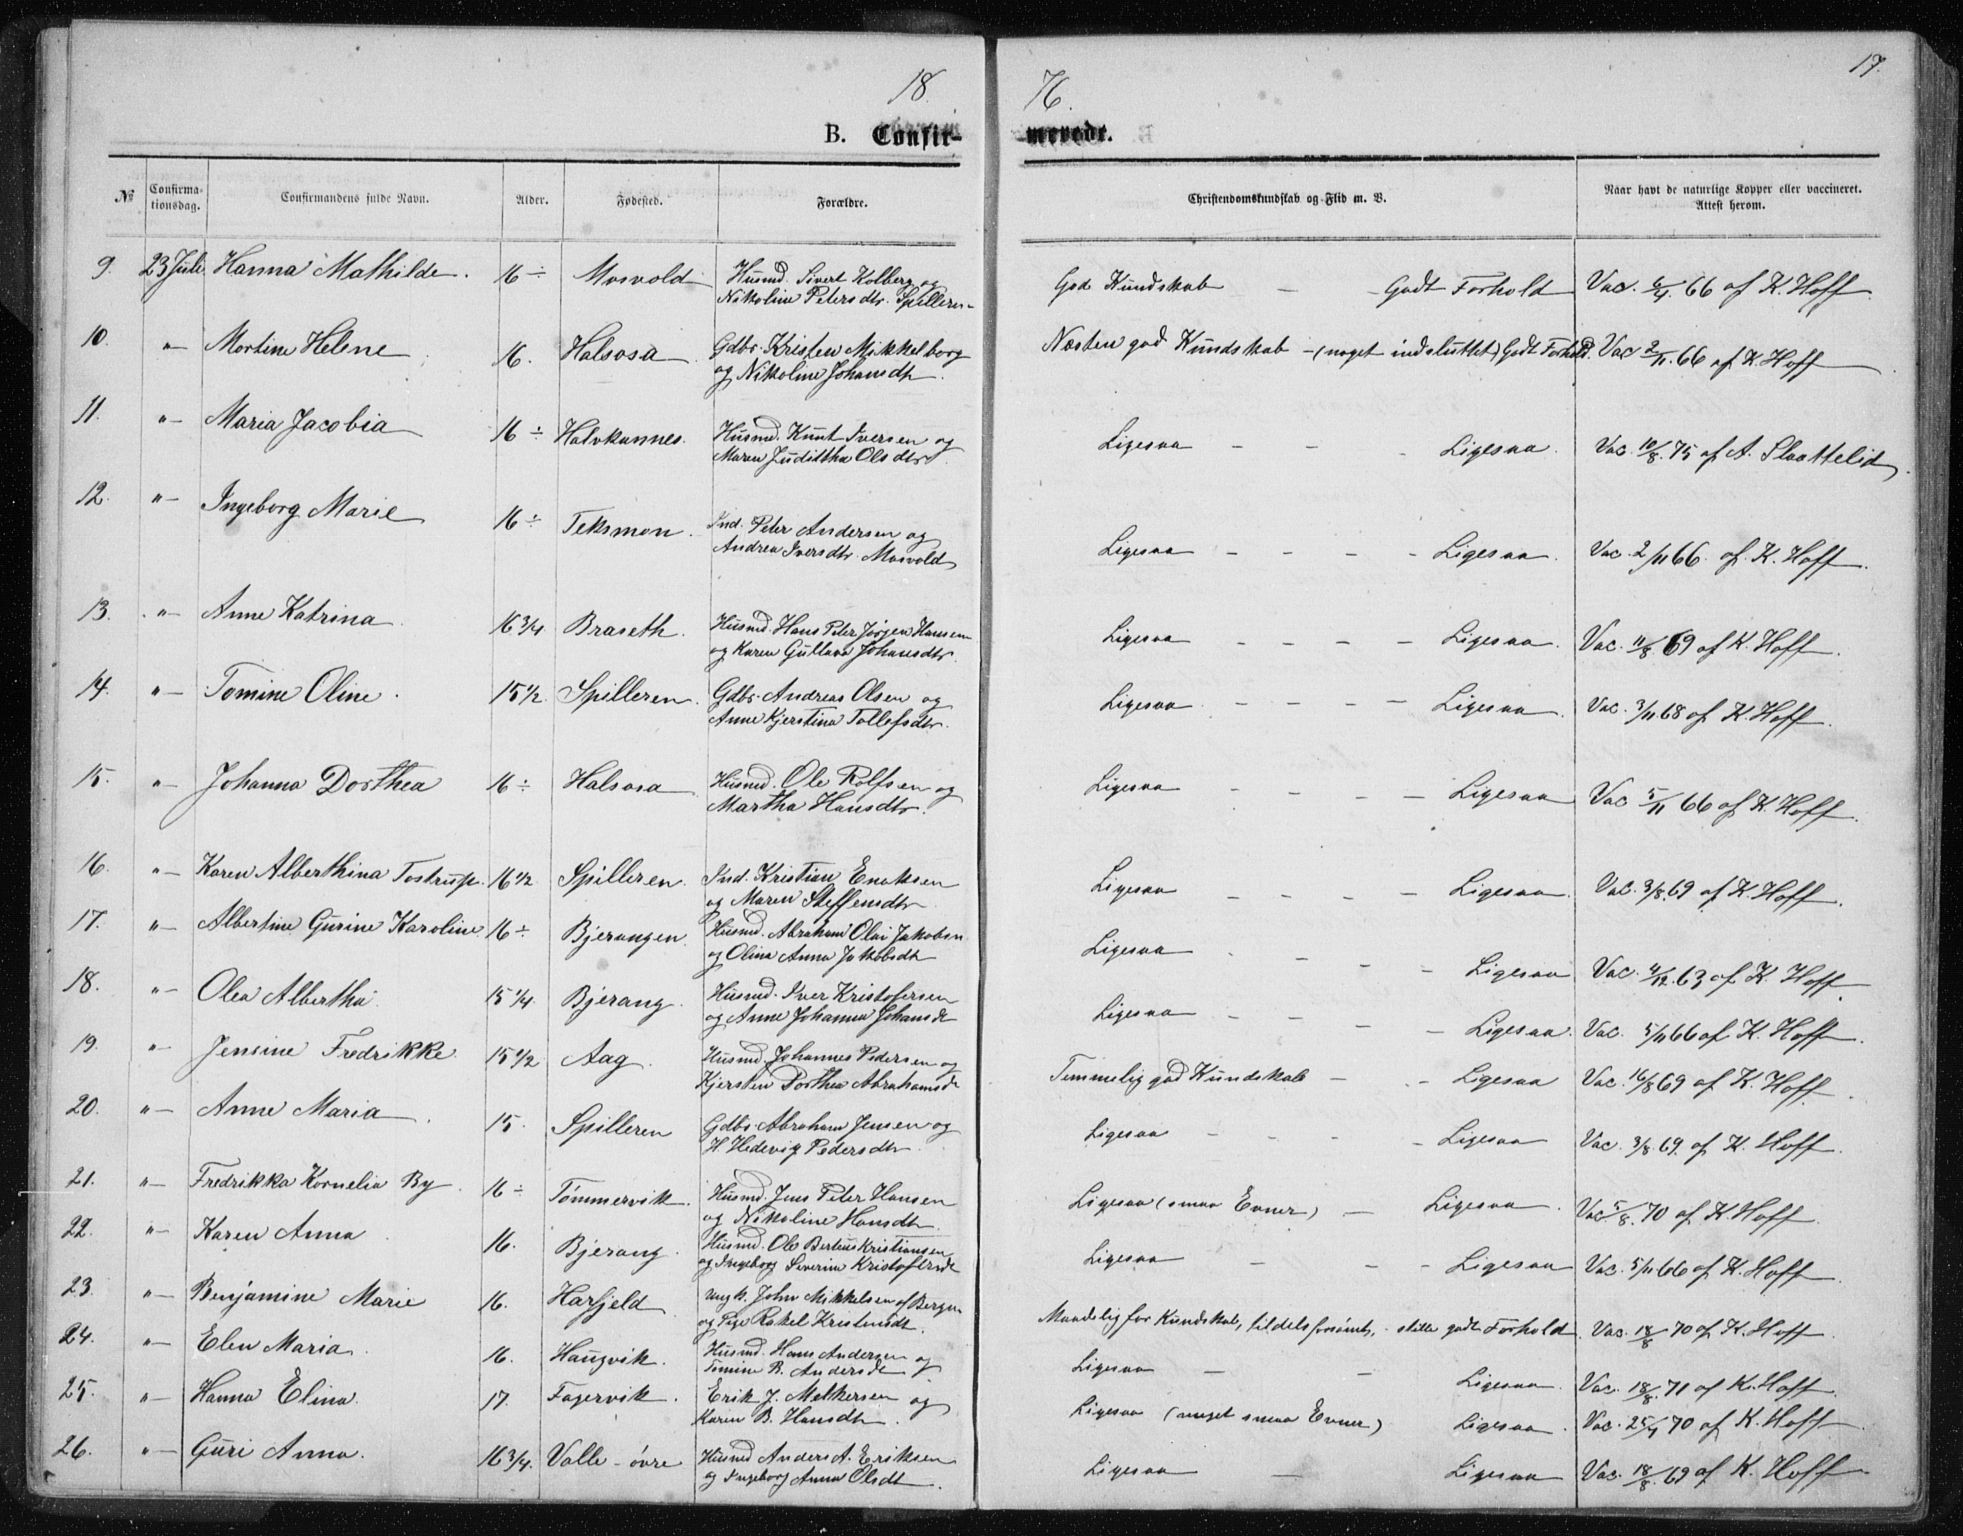 18
76.
17.
B. Confir-
merede.
№
Confirma-
tionsdag.
Confirmandens fulde Navn.
Alder.
Fødested.
Forældre.
Christendomskundskab og Flid m. V.
Naar havt de naturlige Kopper eller vaccineret.
Attest herom.
9. 23 Juli Hanna Mathilde. 16 ÷ Mosvold Husmd. Sivert Kolberg og
Nikoline Petersdtr. Spilleren
God Kundskab — Godt Forhold Vac. 6/4 66 af K. Hoff
10. "— Martine Helene 16. Halsosa Gdbr. Kristen Mikkelborg
og Nikoline Johansdt.
Næsten god Kundskab — (noget indsluttet) Godt Forhold. Vac 2/11. 66 af K. Hoff
11. "— Maria Jacobia 16 ÷ Halvkannes. Husmd. Knut Iversen og
Maren Judittha Olsdtr.
Ligesaa - - - Ligesaa. Vac. 10/8. 75 af A. Slaattelid
12. "— Ingeborg Marie 16 ÷ Teksmon. Ind. Peter Andersen og
Andrea Iversdtr. Mosvold
Ligesaa - - - - Ligesaa. Vac. 2/11 66. af K. Hoff.
13. "— Anne Katrina 16 3/4 Braseth. Husmd. Hans Peter Jørgen Hansen
og Karen Gullava Johansdtr.
Ligesaa - - - - Ligesaa. Vac. 11/8. 69 af K. Hoff.
14. "— Tomine Oline. 15 1/2 Spilleren. Gdbr. Andreas Olsen og
Anne Kjerstina Tollefsdtr.
Ligesaa - - - - Ligesaa. Vac. 3/11 68 af K. Hoff.
15. "— Johanna Dorthea 16 ÷ Halsosa Husmd. Ole Rolfsen og
Martha Hansdtr.
Ligesaa - - - - Ligesaa Vac 5/11 66 af K. Hoff.
16. "— Karen Alberthina Tostrup. 16 1/2 Spilleren. Ind. Kristian Enoksen
og Maren Steffensdtr.
Ligesaa - - - Ligesaa. Vac. 3/8. 69 af K. Hoff.
17. "— Albertine Gurine Karoline 16 ÷ Bjerangen. Husmd. Abraham Olai Jakobsn
og Olina Anna Jakobsdt.
Ligesaa - - - - Ligesaa Vac. 4/12. 63 af K. Hoff.
18. "— Olea Albertha 15 1/4. Bjerang. Husmd. Iver Kristofersen
og Anne Johanna Johansd.
Ligesaa - - - - Ligesaa. Vac. 5/11 66 af K. Hoff.
19. "— Jensine Fredrikke 15 1/2 Aag. Husmd. Johannes Pedersen og
Kjersten Dorthea Abrahamsd.
Temmelig god Kundskab — - Ligesaa Vac. 16/8 69 af K. Hoff.
20. "— Anne Maria 15. Spilleren Gdbr. Abraham Jensen og
H. Hedevig Pedersdtr.
Ligesaa - - - - Ligesaa Vac. 3/8. 69. af K. Hoff.
21. "— Fredrikka Kornelia By. 16 ÷ Tømmervik. Husmd. Jens Peter Hansen
og Nikoline Hansdt.
Ligesaa (smaa Evner) — Ligesaa. Vac. 5/8. 70 af K. Hoff.
22. "— Karen Anna 16. Bjerang. Husmd. Ole Berteus Kristiansen
og Ingeborg Severine Kristofersd.
Ligesaa - - - Ligesaa Vac. 5/11 66 af K. Hoff.
23. "— Benjamine Marie 16. Harfjeld Ungk. John Mikkelsen af Bergen
og Pige Rakel Kristensdt.
Maadelig for Kundskab, tildels forsømt, - stille godt Forhold. Vac. 18/8 70 af K. Hoff.
24. "— Elen Maria 16. Haugvik. Husmd. Hans Andersen og
Tomine B. Andersd.
Ligesaa - - Ligesaa. Vac. 18/8. 71 af K. Hoff.
25. "— Hanna Elina. 17. Fagervik. Erik J. Melkersen og
Karen B. Hansdt.
Ligesaa (noget smaa Evner) Ligesaa. Vac. 25/4 70 af K. Hoff.
26. "— Guri Anna. 16 3/4. Valle - övre Husmd Anders A. Eriksen
og Ingeborg Anna Olsdt.
Ligesaa — Ligesaa Vac. 18/8. 69 af K. Hoff.